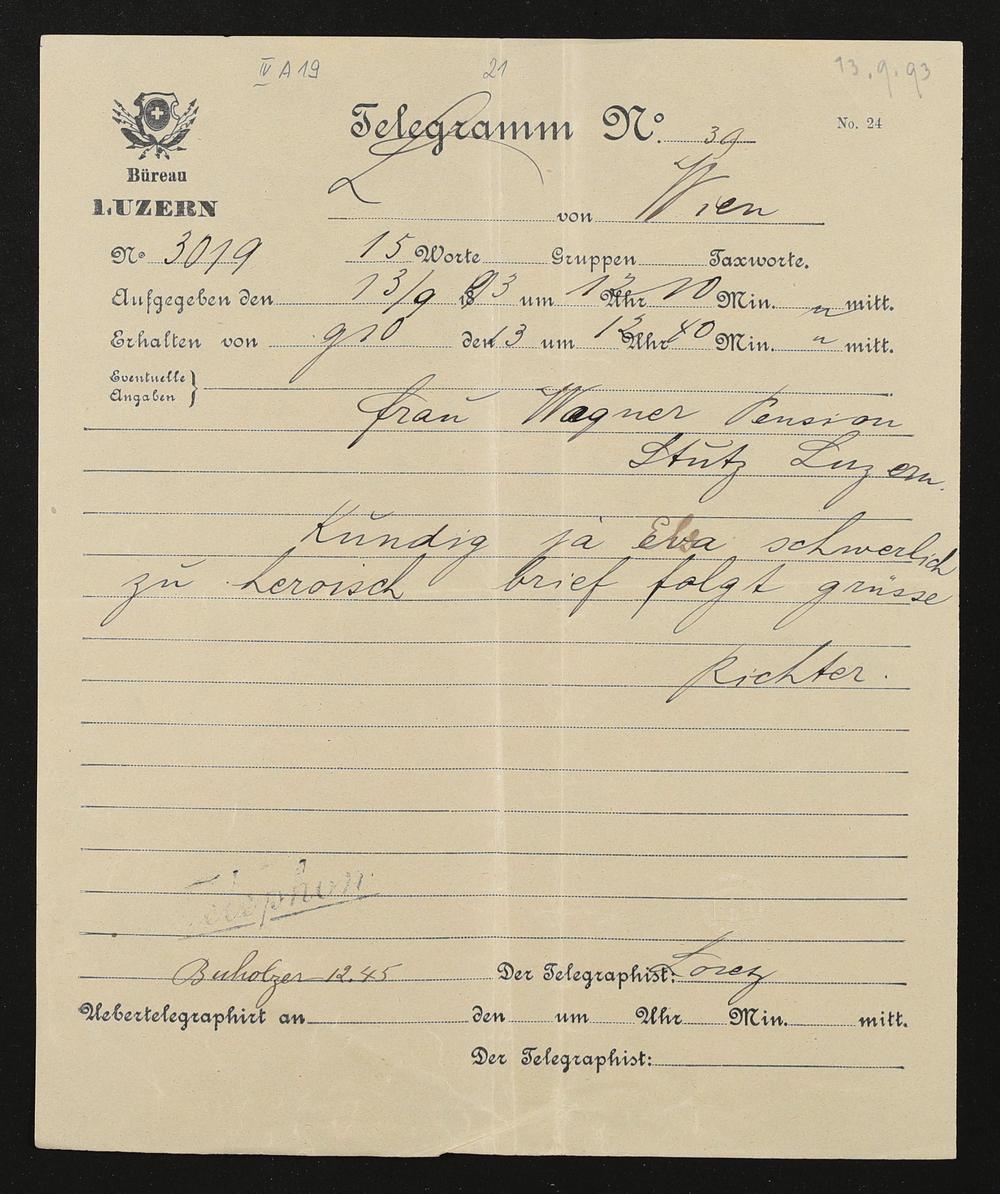 IV A 19
21
13.9.93
Telegramm No. 39
No. 24
Büreau
LUZERN
L von Wien
No 3019 15 Worte Gruppen Taxworte.
Aufgegeben den 13/9 1893 um 12 Uhr 10 Min. n mitt.
Erhalten von 910 den 13 um 12 Uhr 40 Min. " mitt.
Eventuelle
Angaben
frau Wagner Pension
Stutz Luzern.
Kundig ja Elsa schwerlich
zu heroisch brief folgt grüsse
Richter.
Telephon
Buholzer 12.45 Der Telegraphist: Lorez
Uebertelegraphirt an den um Uhr Min. mitt.
Der Telegraphist: